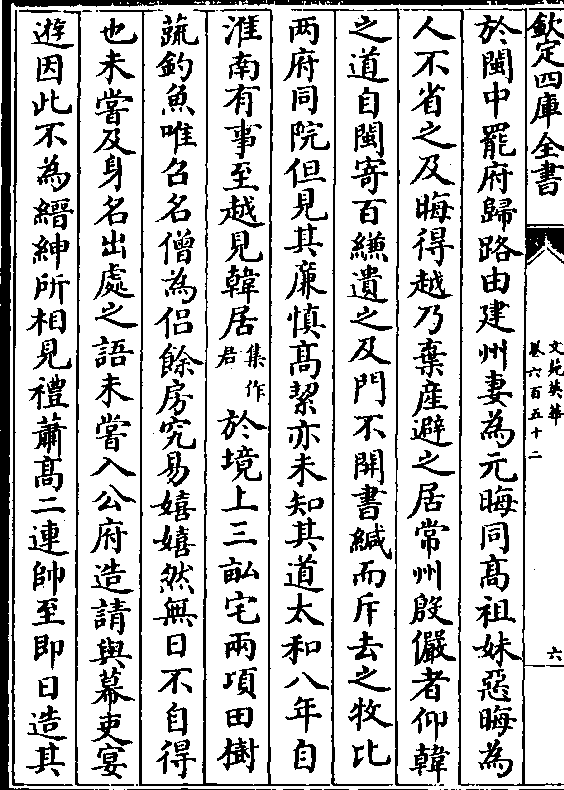 欽定四庫全書
文苑英華
卷六百五十二
六
於閩中罷府歸路由建州妻為元晦同高祖妹惡晦為
人不省之及晦得越乃棄產避之居常州殷儼者仰韓
之道自閩寄百縑遺之及門不開書緘而斥去之牧比
兩府同院但見其廉慎高絜亦未知其道太和八年自
淮南有事至越見韓居集作君於境上三畝宅兩項田樹
蔬釣魚唯召名僧為侣餘房究易嬉嬉然無日不自得
也未嘗及身名出處之語未嘗入公府造請與幕吏宴
遊因此不為縉紳所相見禮蕭高二連帥至即日造其